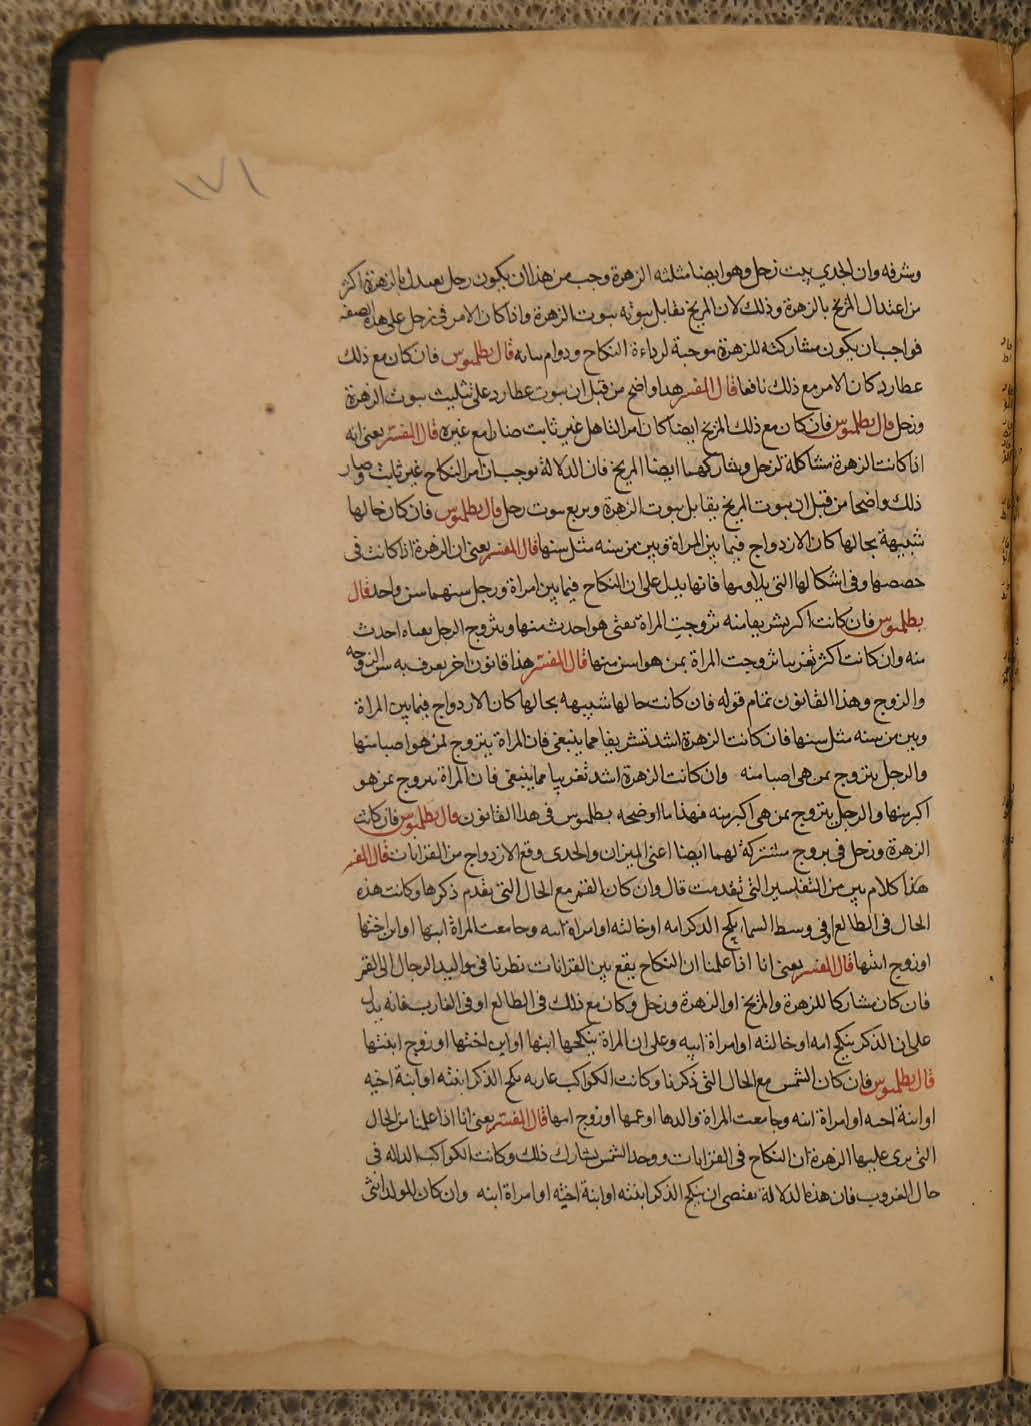 ١٧١
وشرفه وان الجدي بيت زحل وهو ايضا مثلثه الزهرة وجب من هذا ان يكون زحل بالزهرة اكثر
من اعتدال المريخ بالزهرة وذلك لان المريخ تقابل بيوته بيوت الزهرة واذا كان الامر في زحل على هذه الصفه
فواجب ان يكون مشاركته للزهرة موجبة لرداءة النكاح ودوام ثباته قال بطلميوس فان كان مع ذلك
عطارد كان الامر مع ذلك نافعا قال المفسر هذا واضح من قبل ان بيوت عطارد على تثليث بيوت الزهرة
وزحل قال بطلميوس فان كان مع ذلك المريخ ايضا كان امر التاهل غير ثابت ضارا مع غيره قال المفسر يعني انه
اذا كانت الزهرة مشاكلة لزحل ويشاركهما ايضا المريخ فان الدلالة توجب ان امر النكاح غير ثابت وصار
ذلك واضحا من قبل ان بيوت المريخ يقابل بيوت الزهرة ويربع بيوت زحل قال بطلميوس فان كان حالها
شبيهة بحالها كان الازدواج فيما بين المراة وبين من سنه مثل سنها قال المفسر يعني ان الزهرة اذا كانت في
حصصها وفي اشكالها التي يلاومها فانها يدل على ان النكاح فيما بين امراة ورجل سنهما سن واحد قال
بطلميوس فان كانت اكثر تشريقا منه تزوجت المراة بمن هو احدث منها ويتزوج الرجل بفتاه احدث
منه وان كانت اكثر تغريبا تزوجت المراة بمن هو اسن منها قال المفسر هذا قانون اخر يعرف به سن الزوجه
والزوج وهذا القانون تمام قوله فان كانت حالها شبيهه بحالها كان الازدواج فيما بين المراة
وبين من سنه مثل سنها فان كانت الزهرة اشد تشريقا مما ينبغي فان المراة يتزوج لمن هو اصبا منها
والرجل يتزوج بمن هي اصبا منه وان كانت الزهرة اشد تغريبا مما ينبغي فان المراة تتزوج بمن هو
اكبر منها والرجل يتزوج بمن هي اكبر منه فهذا ما اوضحه بطلميوس في هذا القانون قال بطلميوس فان كانت
الزهرة وزحل في بروج مشتركة لهما ايضا اعني الميزان والجدى وقع الازدواج من القرابات قال المفسر
هذا كلام بين من التفاسير التي تقدمت قال وان كان القمر مع الحال التي يقدم ذكرها وكانت هذه
الحال في الطالع او في وسط السماء ينكح الذكر امه او خالته او امراة ابيه وجامعت المراة ابنها او ابن اختها
او زوج ابنتها قال المفسر يعني انا اذا علمنا ان النكاح يقع بين القرابات نظرنا في مواليد الرجال الى القمر
فان كان مشاركا للزهرة والمريخ او الزهرة وزحل وكان مع ذلك في الطالع او في الغارب فانه يدل
على ان الذكر ينكح امه او خالته او امراة ابيه وعلى ان المراة ينكحها ابنها او ابن اختها او زوج ابنتها
قال بطلميوس فان كان الشمس مع الحال التي ذكرنا وكانت الكواكب غاربه نكح الذكر ابنته او ابنة اخيه
او ابنة اخته او امراة ابنه وجامعت المراة والدها او عمها او زوج امها قال المفسر يعني انا اذا علمنا من الحال
التي يرى عليها الزهرة ان النكاح في القرابات ووجد الشمس يشارك ذلك وكانت الكواكب الداله في
حال الغروب فان هذه الدلالة تقتضي ان ينكح الذكر ابنته او ابنة اخيه او امراة ابنه وان كان المولد انثى